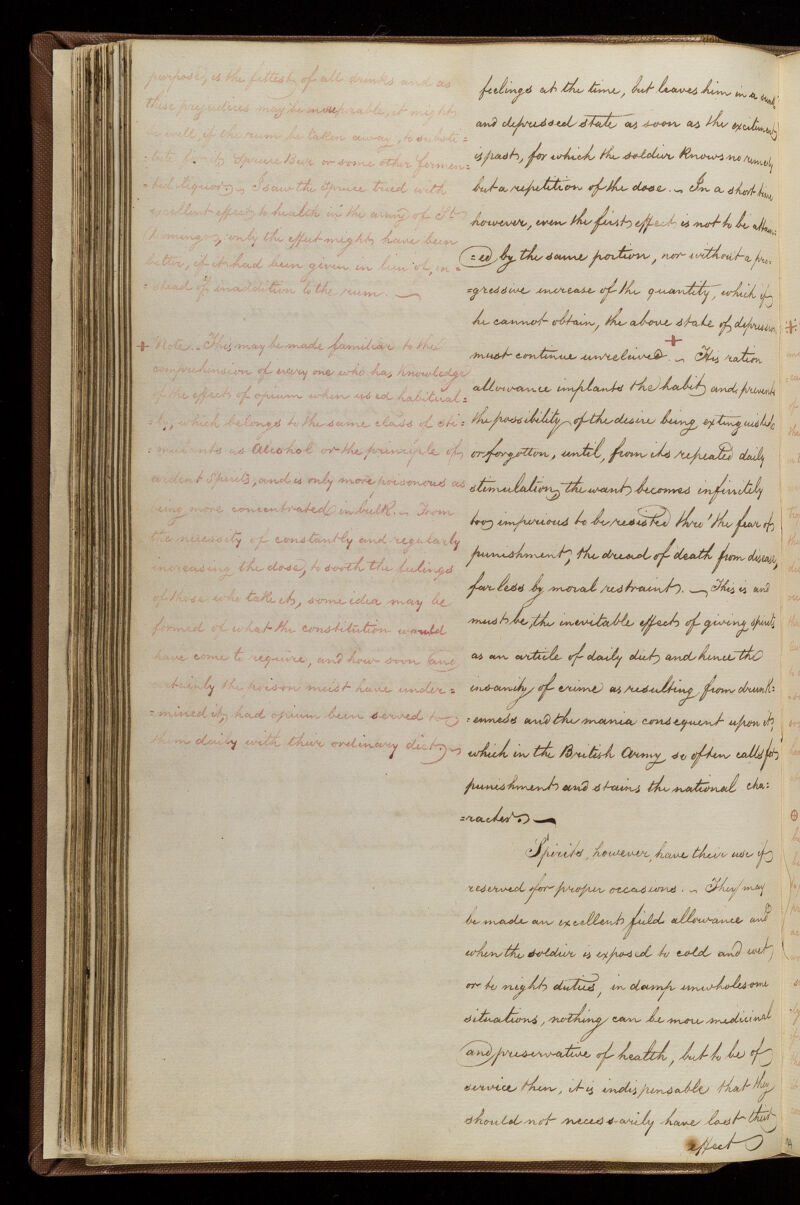 purpose, is the fittest of all drinks and as
these prejudices may be insuperable, it might
be well, if the rum be taken away, to substi=
=tute for it, Spruce Beer or some other fermen=
=ted liquor. I saw the Spruce tried with
excellent effect to health in the army of St.
Domingo, only the effect might have been
better, if it had been given in lieu of, in=
=stead of in addition to the rum. —
+ Note. This may be made familiar to the
comprehension of every one who has knowledge
of the effects of opium when used habitual=
=ly, which belongs to the same class of sti=
=mulants as Alcohol or the principle of
ardent Spirits, and is only more poisonous as
being more concentrated in bulk. From
the necessity of constantly and regularly
increasing the dose, to sooth the feelings
of those who take it, some idea may be
formed of what the constitution would
have come to require, and how soon and
certainly the poison must have under=
=mined it, had opium been served to
them daily with their ordinary diet.
feelings at the time, but leaves him in a weak
and depressed state as soon as the excitement
is past, for which the soldier knows no remedy
but a repetition of the dose. In a short time
however, even the first effect is not to be attain=
=ed by the same portion, nor without a pro=
=gressive increase of the quantity, which if
he cannot obtain, the above state of depression
must continue unrelieved. + This ration
allowance implants the habit and prevents
the possibility of the desire being extinguished
or forgotten, until, from its repeated daily
stimulation, the want becomes infinitely
too imperious to be resisted thro' the fear of
punishment, the dread of death from disease,
far less by moral restraint. — This is and
must be, the inevitable effect of giving spirits
as an article of daily diet, and hence the
insanity of crime as resulting from drunk=
=enness and the mania consequent upon it,
which in the British Army so often calls for
punishment and stains the national cha=
=racter. —
Spirits, however, have their use if
reserved for proper occasions. They may
be made an excellent field allowance and
when the soldier is exposed to cold and wet,
or to night duties, in damp unwholesome
situations, nothing can be more medicinal
and preservative of health, but to be of
service then, it is indispensable that they
should not necessarily have lost their
effect